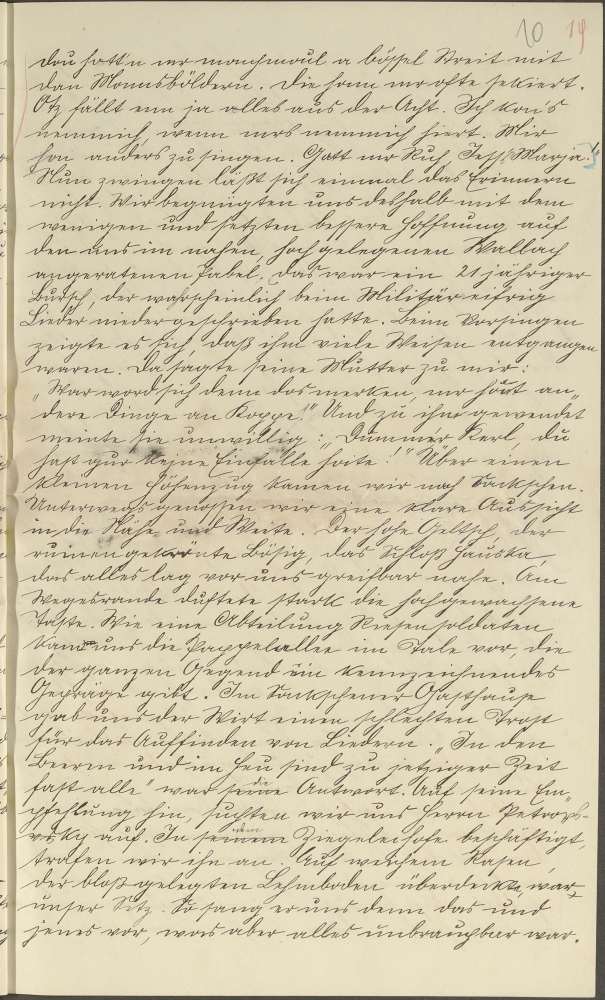 10 19
dou hott'n mr monchmoul a bössel Streit mit
dan Monnsböldern. Die honn mr ofte sekiert.
Otz fällt enn ja alles aus der Acht. Ich kon's
nemmich, wenn mrs nemmich hiert. Mir
hon anders zu singen. Gatt mr Ruh, Jess Marja.!"
Nun zwingen läßt sich einmal das Erinnern
nicht. Wir begnügten uns deshalb mit dem
wenigen und setzten bessere Hoffnung auf
den uns im nahen, hochgelegenen Wallach
angeratenen Pabel. Das war ein 21 jähriger
Bursch, der wahrscheinlich beim Militär eifrig
Lieder niedergeschrieben hatte. Beim Vorsingen
zeigte es sich, daß ihm viele Weisen entgangen
waren. Da sagte seine Mutter zu mir:
"War word sich denn dos merken, mr hout an-
dere Dinge an Koppe!" Und zu ihm gewendet
meinte sie unwillig: "Dummer Kerl, du
hast gur keine Einfälle heite!" Über einen
kleinen Höhenzug kamen wir nach Sackschen.
Unterwegs genossen wir eine klare Aussicht
in die Nähe und Weite. Der hohe Geltsch, der
ruinengekrönte Bösig, das Schloß Hauska,
das alles lag vor uns greifbar nahe. Am
Wegesrande duftete stark die hochgewachsene
Taste. Wie eine Abteilung Riesensoldaten
kam uns die Pappelallee im Tale vor, die
der ganzen Gegend ein kennzeichnendes
Gepräge gibt. Im Sackschener Gasthause
gab uns der Wirt einen schlechten Trost
für das Auffinden von Liedern. "In den
Beeren und im Heu sind zu jetziger Zeit
fast alle" war seine die Antwort. Auf seine Em-
pfehlung hin, suchten wir uns Herrn
auf. In seinem dem Ziegeleihofe beschäftigt,
trafen wir ihn an. Auf welchem Rasen,
der bloßgelegten Lehmboden überdeckte, war
unser Sitz. So sang er uns denn das und
jenes vor, was aber alles unbrauchbar war.